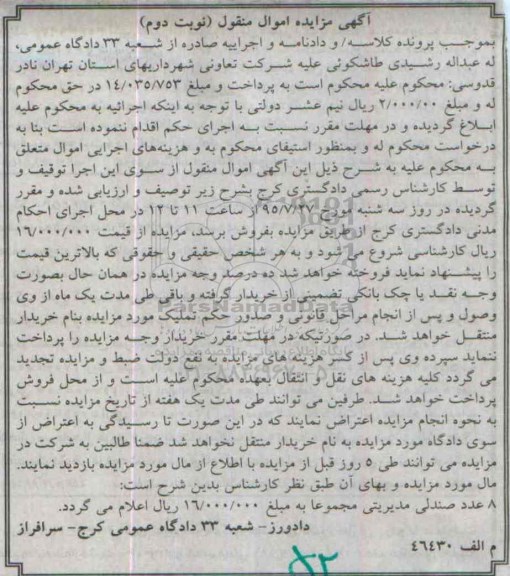 آگهی مزایده اموال منقول (نوبت دوم)
بموجب پرونده کلاسه/ و دادنامه و اجراییه صادره از شعبه ۳۳ دادگاه عمومی،
له عبداله رشیدی طاشکوئی علیه شرکت تعاونی شهرداریهای استان تهران نادر
قدوسی: محکوم علیه محکوم است به پرداخت و مبلغ ۱۴/۰۳۵/۷۵۳ در حق محکوم
له و مبلغ ۲/۰۰۰/۰۰ ریال نیم عشر دولتی با توجه به اینکه اجرائیه به محکوم علیه
ابلاغ گردیده و در مهلت مقرر نسبت به اجرای حکم اقدام ننموده است بنا به
درخواست محکوم له و بمنظور استیفای محکوم به و هزینه‌های اجرایی اموال متعلق
به محکوم علیه به شرح ذیل این آگهی اموال منقول از سوی این اجرا توقیف و
توسط کارشناس رسمی دادگستری کرج بشرح زیر توصیف و ارزیابی شده و مقرر
گردیده در روز سه شنبه مورخ ۹۵/۷/۲۰ از ساعت ۱۱ تا ۱۲ در محل اجرای احکام
مدنی دادگستری کرج از طریق مزایده بفروش برسد. مزایده از قیمت ۱۶/۰۰۰/۰۰۰
ریال کارشناسی شروع می شود و به هر شخص حقیقی و حقوقی که بالاترین قیمت
را پیشنهاد نماید فروخته خواهد شد ده درصد وجه مزایده در همان حال بصورت
وجه نقد یا چک بانکی تضمینی از خریدار گرفته و باقی طی مدت یک ماه از وی
وصول و پس از انجام مراحل قانونی و صدور حکم تملیک مورد مزایده بنام خریدار
منتقل خواهد شد. در صورتیکه در مهلت مقرر خریدار وجه مزایده را پرداخت
ننماید سپرده وی پس از کسر هزینه های مزایده بنفع دولت ضبط و مزایده تجدید
می گردد کلیه هزینه های نقل و انتقال بعهده محکوم علیه است و از محل فروش
پرداخت خواهد شد. طرفین می توانند طی مدت یک هفته از تاریخ مزایده نسبت
به نحوه انجام مزایده اعتراض نمایند که در این صورت تا رسیدگی به اعتراض از
سوی دادگاه مورد مزایده به نام خریدار منتقل نخواهد شد ضمنا طالبین به شرکت در
مزایده می توانند طی ۵ روز قبل از مزایده با اطلاع از مال مورد مزایده بازدید نمایند.
مال مورد مزایده و بهای آن طبق نظر کارشناس بدین شرح است:
۸ عدد صندلی مدیریتی مجموعا به مبلغ ۱۶/۰۰۰/۰۰۰ ریال اعلام می گردد.
دادورز- شعبه ۳۳ دادگاه عمومی کرج- سرافراز
م الف ۴۶۴۳۰
ParsNamadData